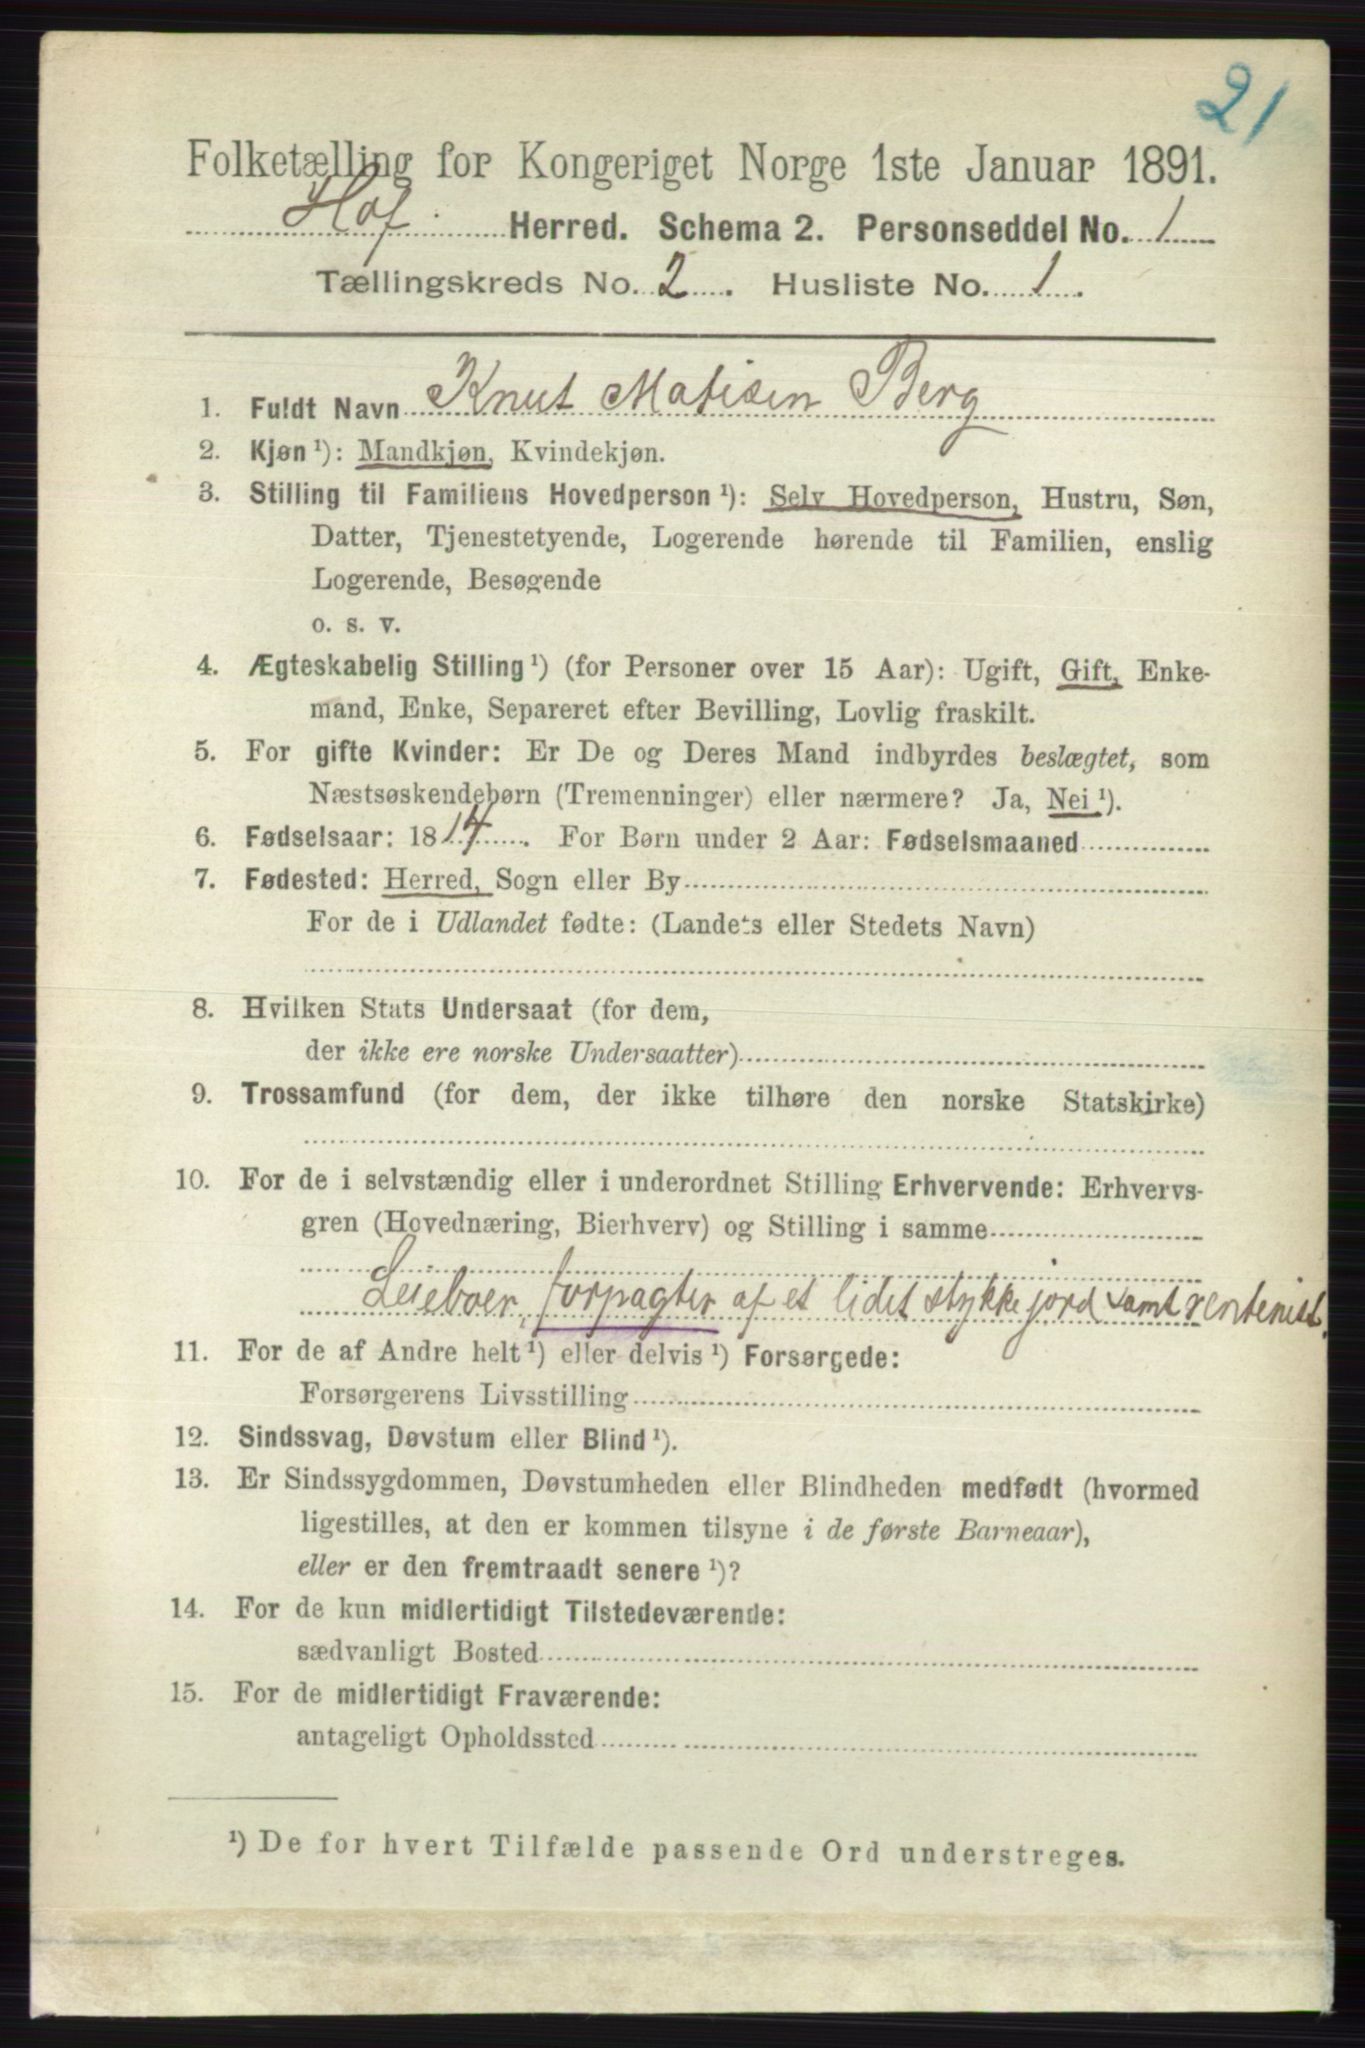 21
Folketælling for Kongeriget Norge 1ste Januar 1891.
Hof Herred. Schema 2. Personseddel No. 1
Tællingskreds No. 2. Husliste No. 1.
1. Fuldt Navn Knut Matisen Berg
2. Kjøn ¹): Mandkjøn, Kvindekjøn.
3. Stilling til Familiens Hovedperson ¹): Selv Hovedperson, Hustru, Søn,
Datter, Tjenestetyende, Logerende hørende til Familien, enslig
Logerende, Besøgende
o. s. v.
4. Ægteskabelig Stilling ¹) (for Personer over 15 Aar): Ugift, Gift, Enke-
mand, Enke, Separeret efter Bevilling, Lovlig fraskilt.
5. For gifte Kvinder: Er De og Deres Mand indbyrdes beslægtet, som
Næstsøskendebørn (Tremenninger) eller nærmere? Ja, Nei ¹).
6. Fødselsaar: 1814. For Børn under 2 Aar: Fødselsmaaned
7. Fødested: Herred, Sogn eller By
For de i Udlandet fødte: (Landets eller Stedets Navn)
8. Hvilken Stats Undersaat (for dem,
der ikke ere norske Undersaatter)
9. Trossamfund (for dem, der ikke tilhøre den norske Statskirke)
10. For de i selvstændig eller i underordnet Stilling Erhvervende: Erhvervs-
gren (Hovednæring, Bierhverv) og Stilling i samme
forpagter af et lidet stykke jord samt rentenist.
11. For de af Andre helt ¹) eller delvis ¹) Forsørgede:
Forsørgerens Livsstilling
12. Sindssvag, Døvstum eller Blind ¹).
13. Er Sindssygdommen, Døvstumheden eller Blindheden medfødt (hvormed
ligestilles, at den er kommen tilsyne i de første Barneaar),
eller er den fremtraadt senere ¹)?
14. For de kun midlertidigt Tilstedeværende:
sædvanligt Bosted
15. For de midlertidigt Fraværende:
antageligt Opholdssted
¹) De for hvert Tilfælde passende Ord understreges.